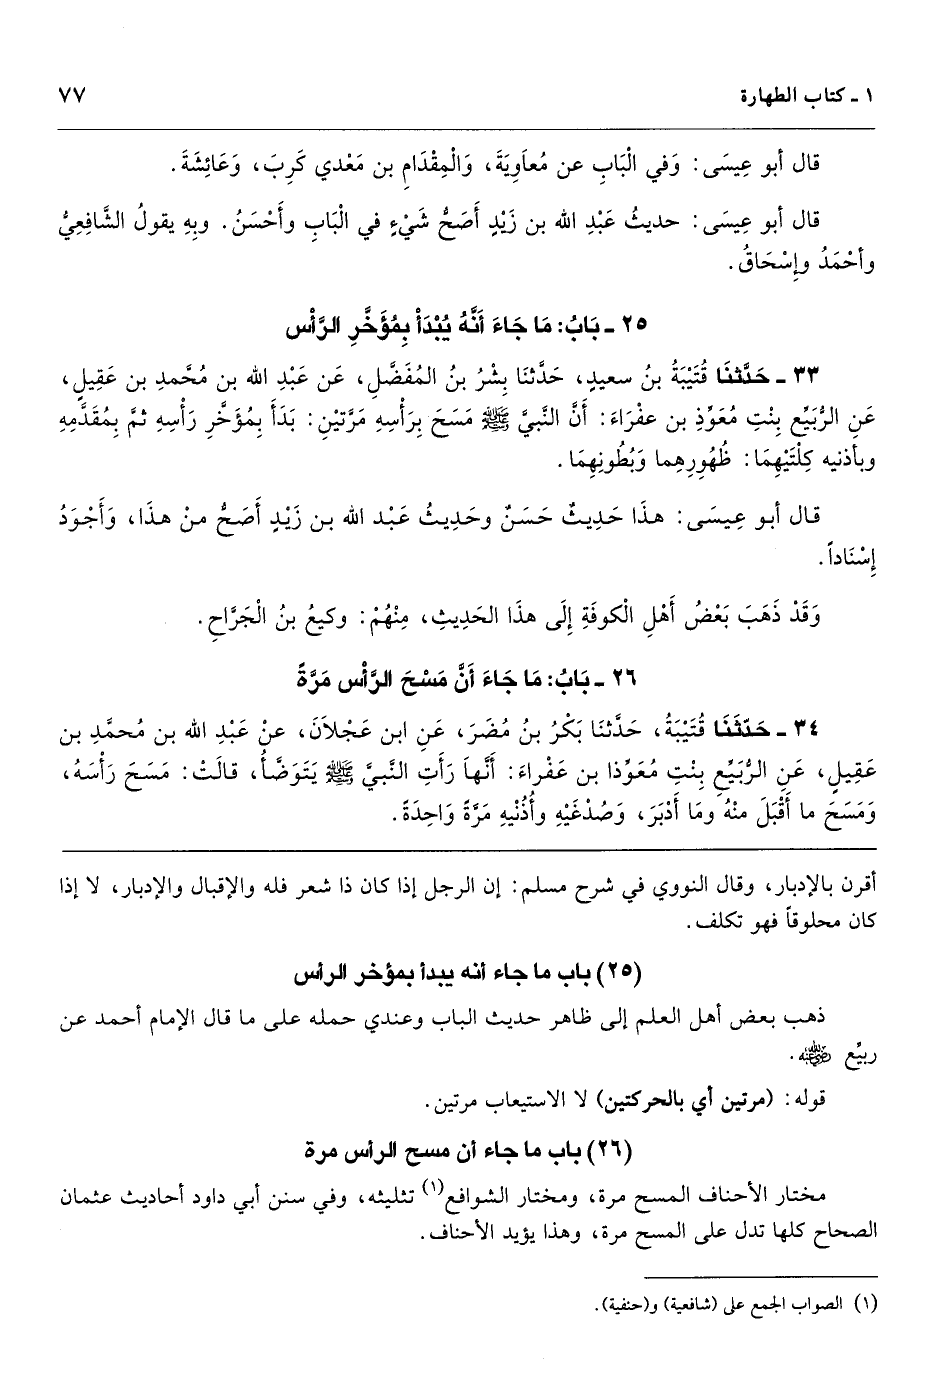 ١ ـ كتاب الطهارة ٧٧
قال أبو عِيسَى: وَفي الْبَابِ عن مُعاوِيَةَ، وَالْمِقْدَامِ بن مَعْدي كَرِبَ، وَعَائِشَةَ.
قال أبو عِيسَى: حديثُ عَبْدِ الله بن زَيْدٍ أَصَحُّ شَيْءٍ في الْبَابِ وأَحْسَنُ. وبِهِ يقولُ الشَّافِعِيُّ
وأحْمَدُ وإِسْحَاقُ.
٢٥ ـ بَابُ: مَا جَاءَ أَنَّهُ يُبْدَأْ بِمُؤَخَّرِ الرَّأْس
٣٣ ـ حَدَّثنَا قُتَيْبَةُ بنُ سعيدٍ، حَدَّثنَا بِشْرُ بنُ المُفَضَّلِ، عَن عَبْدِ الله بن مُحَّمدِ بن عَقِيلٍ،
عَنِ الرُّبَيِّعِ بِنْتِ مُعَوِّذِ بن عفْرَاءَ: أَنَّ النبيَّ ﷺ مَسَحَ بِرَأْسِهِ مَرَّتيْنِ: بَدَأَ بِمُؤخَّرِ رَأْسِهِ ثمَّ بِمُقَدَّمِهِ
وبأذنيه كِلْتَيْهِمَا: ظُهُورِهِما وَبُطُونِهِمَا.
قال أبو عِيسَى: هذَا حَدِيثٌ حَسَنٌ وحَدِيثُ عَبْد الله بن زَيْدٍ أَصَحُّ منْ هذَا، وَأَجْوَدُ
إِسْنَاداً.
وَقَدْ ذَهَبَ بَعْضُ أَهْلِ الْكوفَةِ إِلَى هذَا الحَدِيثِ، مِنْهُمْ: وكيعُ بنُ الْجَرَّاحِ.
٢٦ ـ بَابُ: مَا جَاءَ أَنَّ مَسْحَ الرَّأْس مَرَّةً
٣٤ ـ حَدّثَنَا قُتَيْبَةُ، حَدَّثنَا بَكْرُ بنُ مُضَرَ، عَنِ ابن عَجْلاَنَ، عنْ عَبْدِ الله بن مُحمَّدِ بن
عَقِيلٍ، عَنِ الرُّبَيِّعِ بِنْتِ مُعَوِّذا بن عَفْراءَ: أَنَّهاَ رَأَتِ النبيَّ ﷺ يَتَوَضَّأُ، قالَتْ: مَسَحَ رَأْسَهُ،
وَمَسَحَ ما أَقْبَلَ منْهُ ومَا أَدْبَرَ، وَصُدْغَيْهِ وأُذُنْيهِ مَرَّةً وَاحِدَةً.
أقرن بالإدبار، وقال النووي في شرح مسلم: إن الرجل إذا كان ذا شعر فله والإقبال والإدبار، لا إذا
كان محلوقاً فهو تكلف.
(٢٥) باب ما جاء أنه يبدأ بمؤخر الرأس
ذهب بعض أهل العلم إلى ظاهر حديث الباب وعندي حمله على ما قال الإمام أحمد عن
ربيِّع رضي الله عنه.
قوله: (مرتين أي بالحركتين) لا الاستيعاب مرتين.
(٢٦) باب ما جاء أن مسح الرأس مرة
مختار الأحناف المسح مرة، ومختار الشوافع(١) تثليثه، وفي سنن أبي داود أحاديث عثمان
الصحاح كلها تدل على المسح مرة، وهذا يؤيد الأحناف.
(١) الصواب الجمع على (شافعية) و(حنفية).